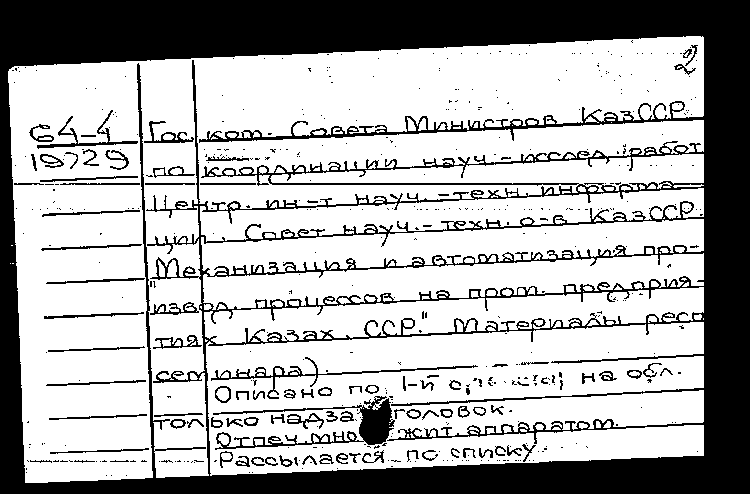 2
64-4
19729
Гос. ком. Совета Министров КазССР
по координации науч.-исслед. работ
Центр. ин-т науч.-техн. информа-
ции. Совет науч.-техн. о-в КазССР.
"Механизация и автоматизация про-
извод. процессов на пром. предприя-
тиях Казах. ССР." Материалы респ
семинара).
Описано по 1-й на обл.
только надзаголовок.
Отпеч. множит. аппаратом
Рассылается по списку